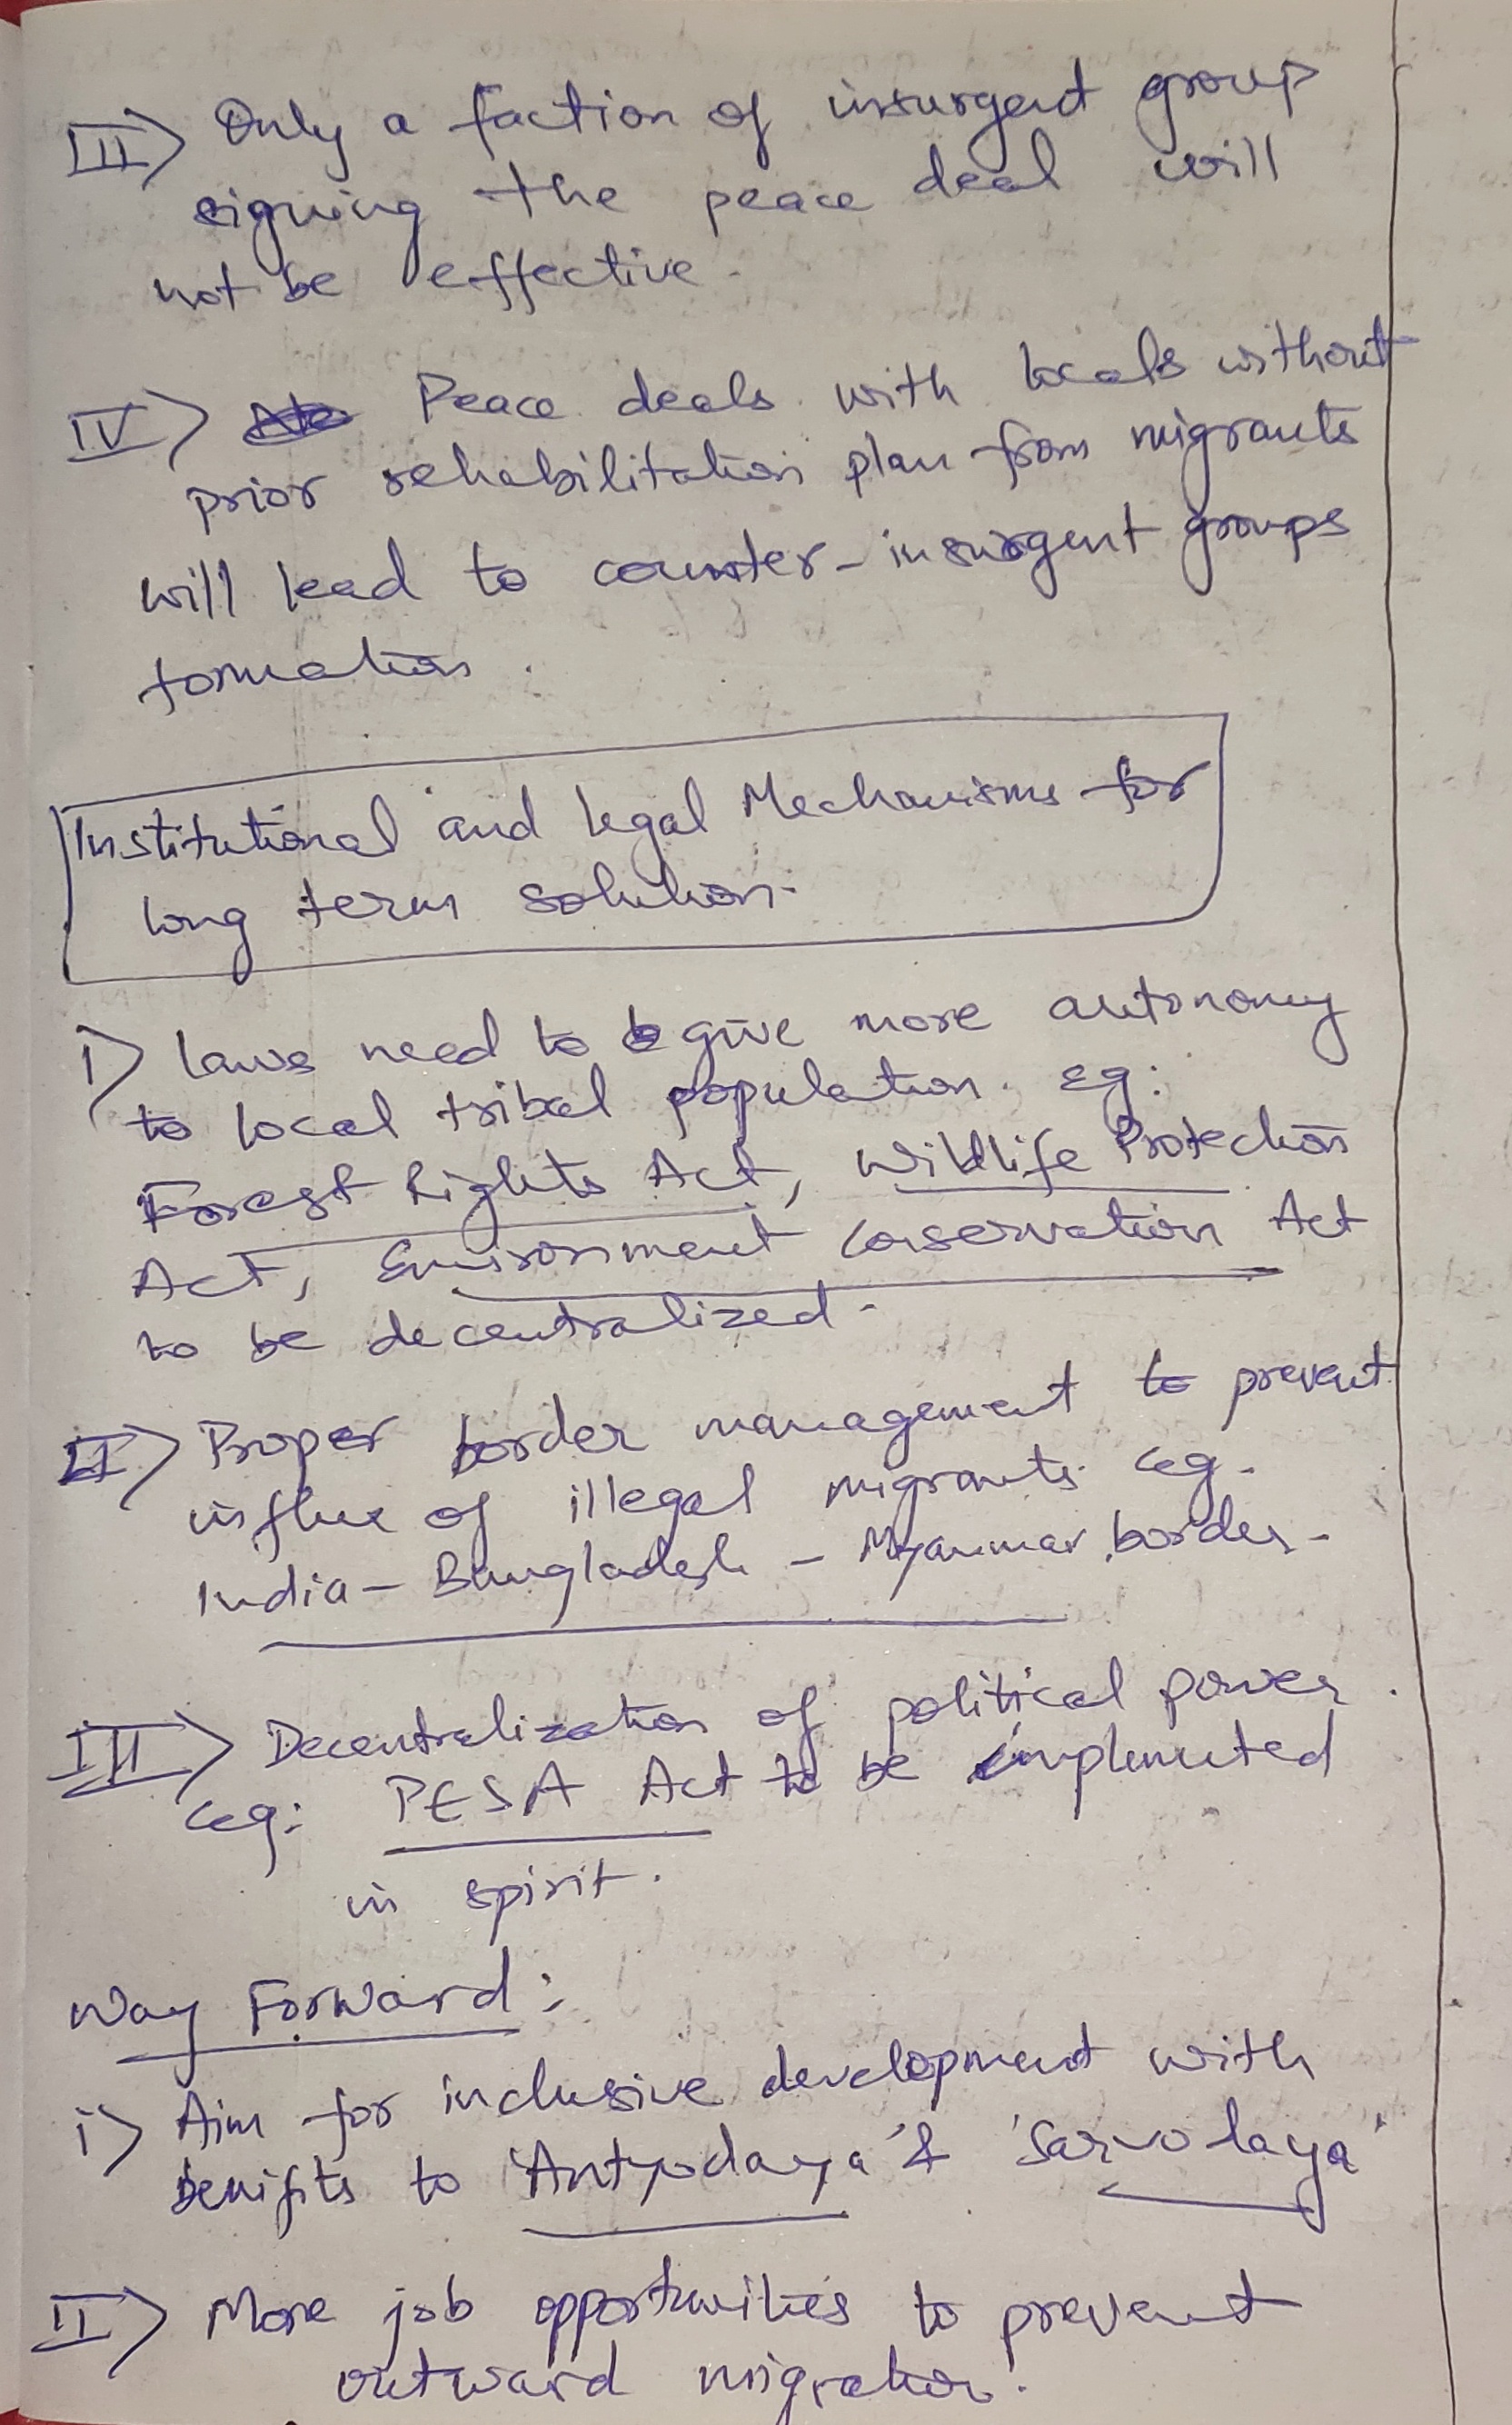 III> Only a faction of insurgent group
signing the peace deal will
not be effective.
IV> Peace deals with locals without
prior rehabilitation plan from migrants
will lead to counter-insurgent groups
formation.
Institutional and Legal Mechanisms for
long term solution.
I> Laws need to give more autonomy
to local tribal population. eg:
Forest Rights Act, Wildlife Protection
Act, Environment Conservation Act
to be decentralized.
II> Proper border management to prevent
influx of illegal migrants. eg.
India - Bangladesh - Myanmar border.
III> Decentralization of political power.
eg: PESA Act to be implemented
in spirit.
Way Forward:
i> Aim for inclusive development with
benifits to 'Antyodaya' & 'Sarvodaya'
II> More job opportunities to prevent
outward migration.